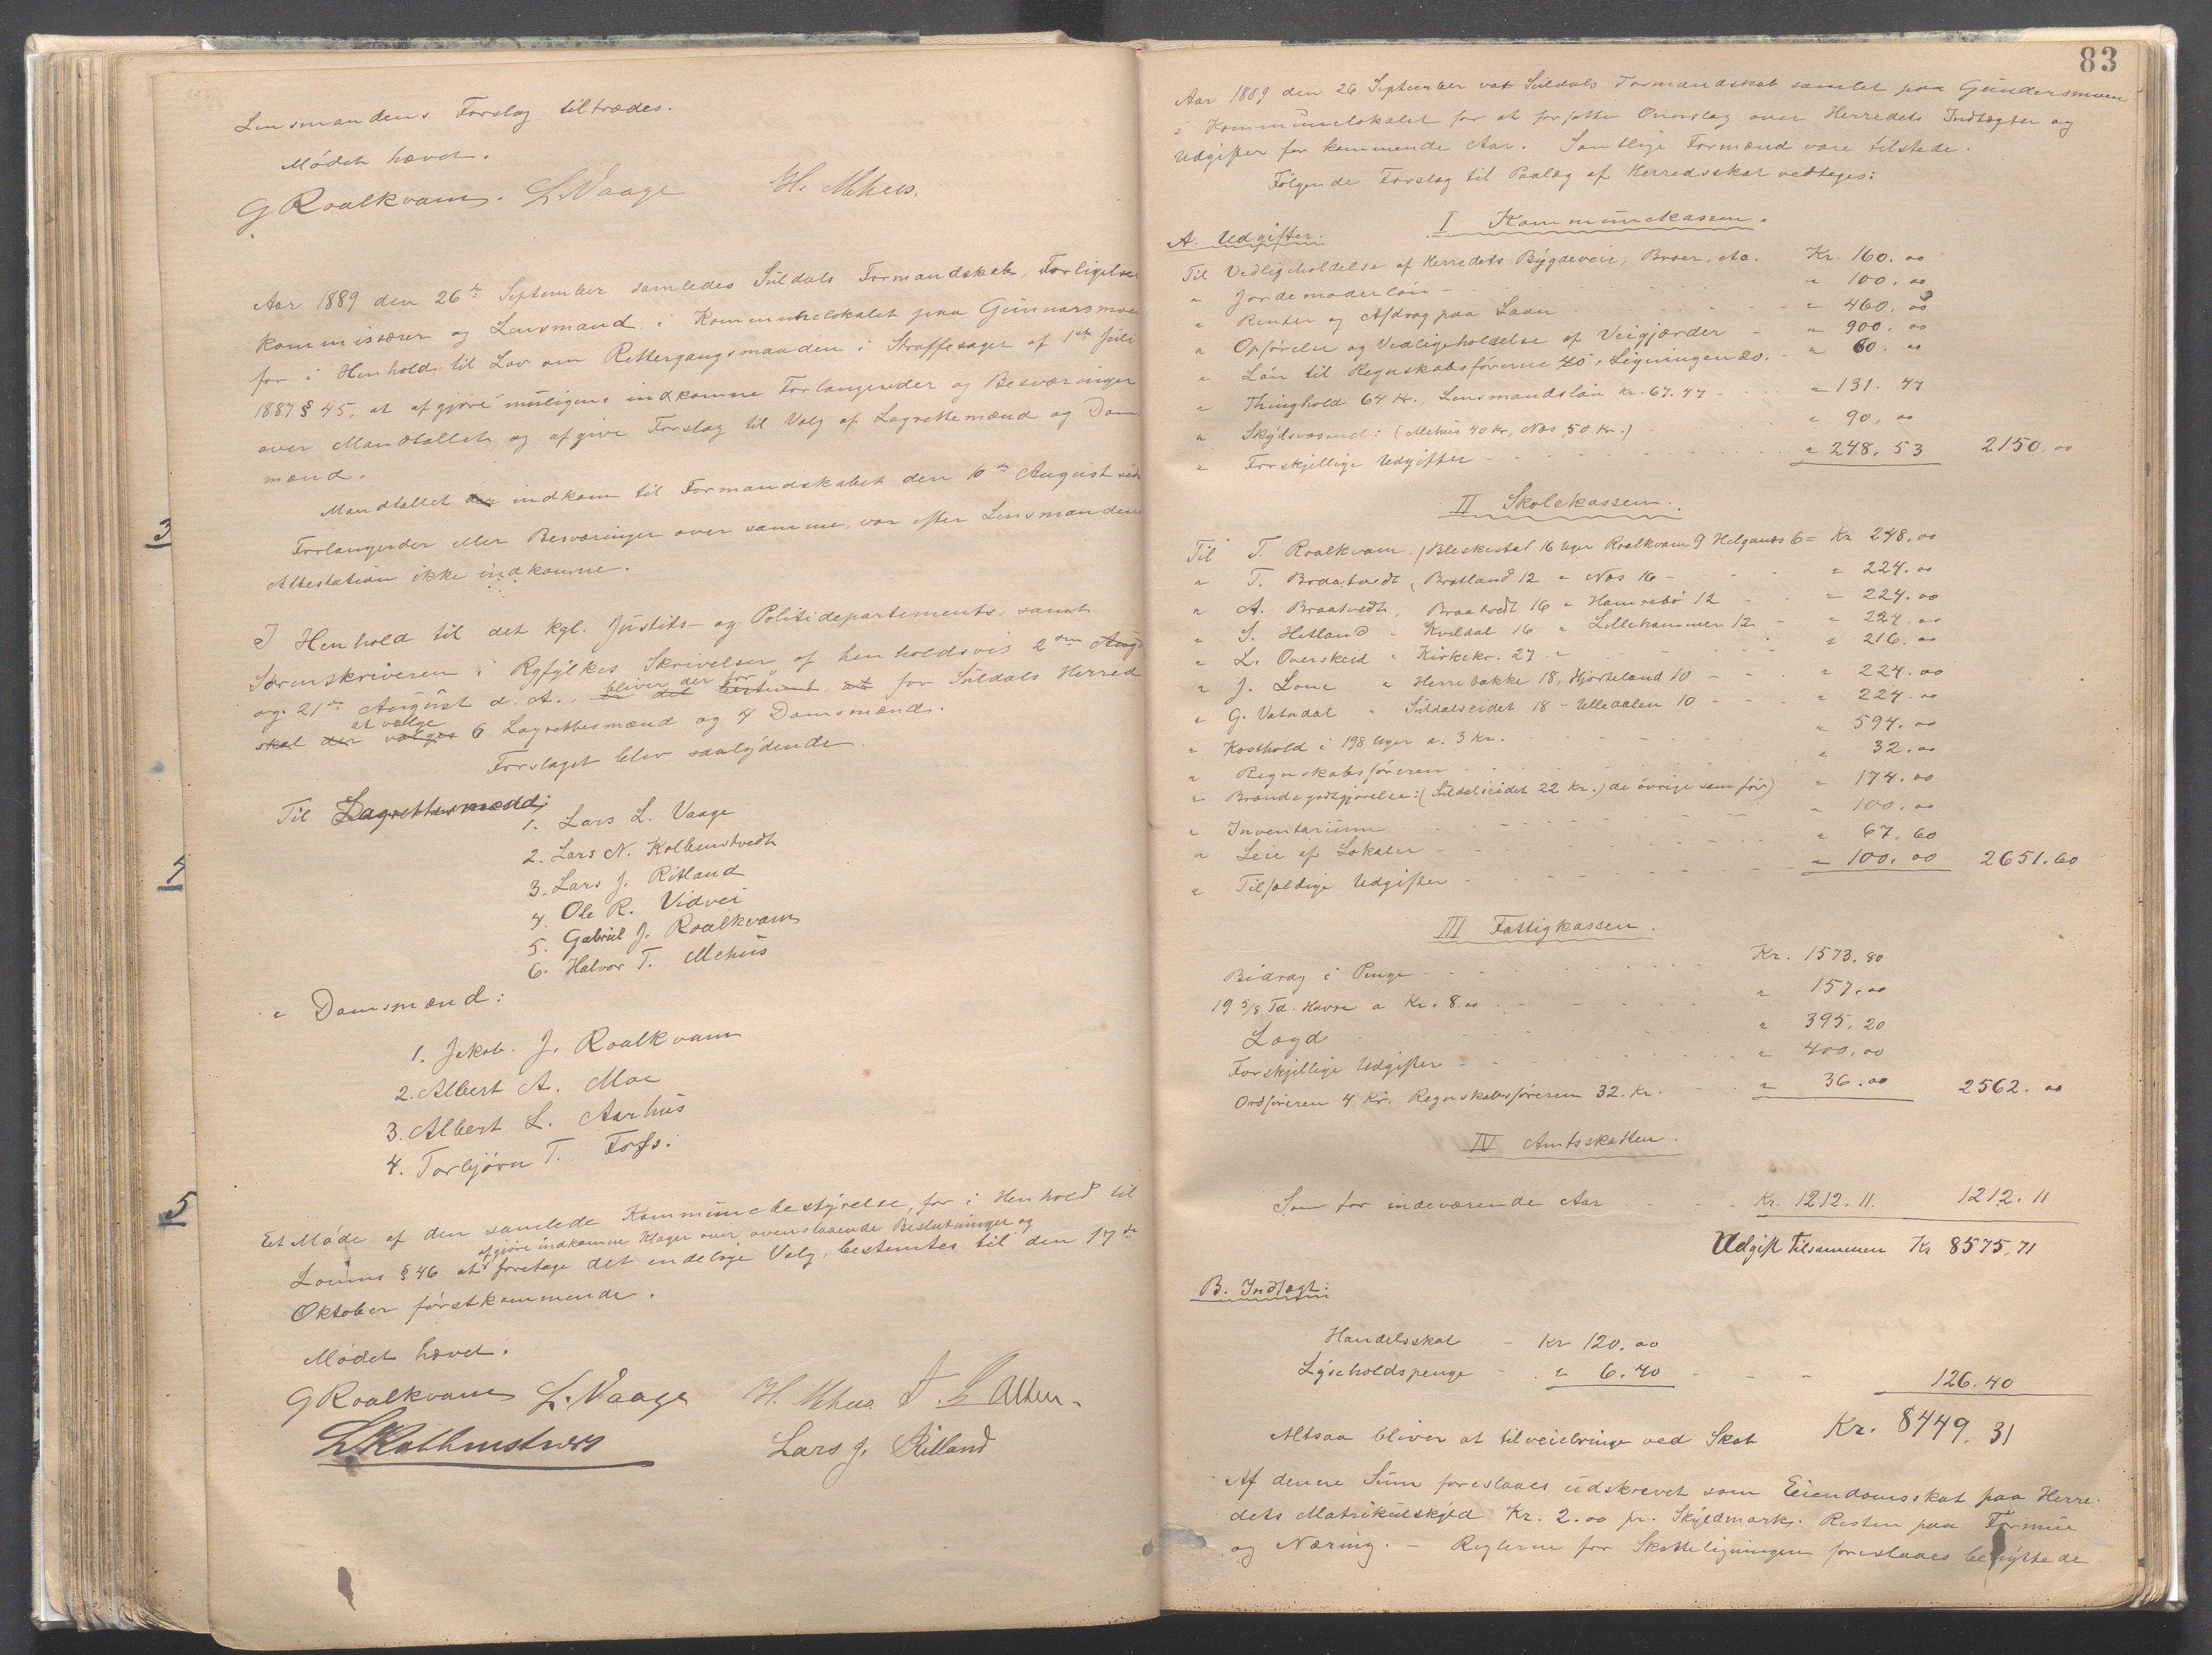 Lensmandens Forslag tiltrædes.
Mödet hævet.
G Roalkvam. L. Vaage H. Mehus.
Aar 1889 den 26de September samledes Suldals Formandskab, Forligelses
kommissærer og Lensmand i Kommunelokalet paa Gunnarsmoen
for i Henhold til Lov om Rettergangsmaaden i Straffesager af 1ste Juli
1887 § 45, at afgjöre muligens indkomne Forlangender og Besværinger
over Mandtallet og afgive Forslag til Valg af Lagrettemænd og Doms
mænd.
3
Mandtallet indkom til Formandskabet den 6te August
Forlangender eller Besværinger over samme, var efter Lensmandens
Attestation ikke indkomne.
I Henhold til det kgl. Justits- og Politidepartements, samt
Sorenskriveren i Ryfylkes Skrivelser af henholdsvis 2den Aug
og 21de August d. A., bliver der for for Suldals Herred
at vælge
skal der vælges 6 Lagrettesmænd og 4 Domsmænd.
Forslaget blev saalydende.
4
Til Lagrettesmænd:
1. Lars L. Vaage
2. Lars N. Kolbenstvedt
3. Lars J. Ritland
4 Ole R. Vidvei
5. Gabriel J. Roalkvam
6. Halvor T. Mehus
" Domsmænd:
1. Jakob. J. Roalkvam
2. Albert A. Moe
3. Albert L. Aarhus
4. Torbjörn T. Foss.
5
Et Möde af den samlede Kommunebestyrelse, for i Henhold til
afgjöre indkomne Klager over ovenstaaende Beslutninger og
Lovens § 46 at foretage det endelige Valg, bestemtes til den 17de
Oktober förstkommende.
Mödet hævet.
G Roalkvam L. Vaage H. Mehus.
L Kolbenstvedt Lars J. Ritland
83
Aar 1889 den 26 September var Suldals Formandskab samlet paa Gundersmoen
i Kommunelokalet for at forfatte Overslag over Herredets Indtægter og
Udgifter for kommende Aar. Samtlige Formænd vare tilstede.
Fölgende Forslag til Paalæg af Herredsskat vedtoges:
I Kommunekassen.
A. Udgifter.
Til Vedligeholdelse af Herredets Bygdeveie, Broer, etc. Kr. 160.00
" Jordemoderlön " 100.00
" Renter og Afdrag paa Laan " 460.00
" Opförelse og Vedligeholdelse af Veigjærder " 900.00
" Lön til Regnskabsförerne 40, Ligningen 20. " 60.00
" Thinghold 64 Kr., Lensmandslön Kr. 67.47 " 131.47
" Skydsvæsenet: (Mehus 40 Kr, Næs 50 Kr.) " 90.00
" Forskjellige Udgifter " 248.53 2150.00
II Skolekassen.
Til T. Roalkvam. (Bleskestad 16 Uger Roalkvam 9 Helganes 6 = Kr 248.00
" T. Braatvedt, Bratland 12 " Næs 16 " 224.00
" A. Braatvedt, Braatvedt 16 " Hamrebö 12 " 224.00
" S. Hetland " Kvildal 16 " Lillehammer 12 " 224.00
" L. Overskeid " Kirkekr. 27 " " 216.00
" J. Lone " Herrebakke 18, Hjorteland 10 " 224.00
" G. Vatndal " Suldalseidet 18 - Ulledalen 10 " 224.00
" Kosthold i 198 Uger a. 3 Kr. " 594.00
" Regnskabsföreren " 32.00
" Brændegodtgjörelse: (Suldalseidet 22 Kr.) de övrige som för) " 174.00
" Inventarium " 100.00
" Leie af Lokaler " 67.60
" Tilfældige Udgifter " 100.00 2651.60
III Fattigkassen.
Bidrag i Penge Kr. 1573.80
19 5/8 Td. Havre a Kr. 8.00 " 157.00
Lægd " 395.20
Forskjellige Udgifter " 400.00
Ordföreren 4 Kr. Regnskabsföreren 32. Kr. " 36.00 2562.00
IV Amtsskatten.
Som for indeværende Aar Kr. 1212.11. 1212.11
Udgift tilsammen Kr 8575.71
B. Indtægt:
Handelsskat Kr 120.00
Lyseholdspenge " 6.40 126.40
Altsaa bliver at tilveiebringe ved Skat Kr. 8449.31
Af denne Sum foreslaaes udskrevet som Eiendomsskat paa Herre-
dets Matrikulskyld Kr. 2.00 pr. Skyldmark. Resten paa Formue
og Næring. - Reglerne for Skatteligningen foreslaaes benyttede